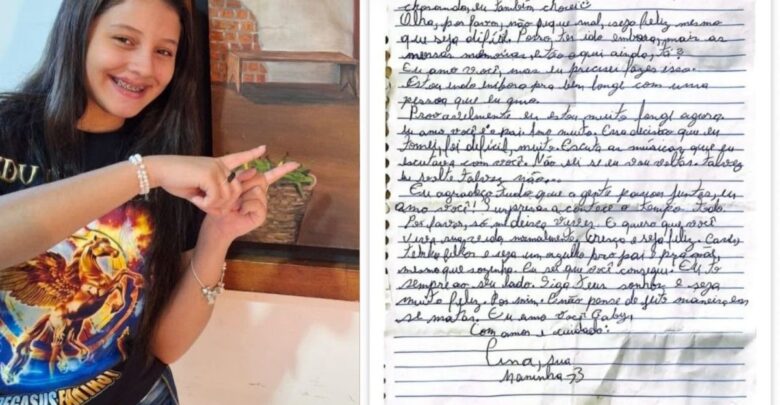 NDU
PEGASUS FANTASY
chorando, eu também chorei
Olha, por favor, não fique mal, seja feliz mesmo
que seja difícil. Posso ter ido embora, mais as
nossas memórias estão aqui ainda, tá?
Eu amo você, mas eu precisei fazer isso.
Estou indo embora pra bem longe com uma
pessoa que eu amo.
Provavelmente eu estou muito longe agora.
eu amo você e o pai, amo muito. Essa decisão que eu
tomei, foi difícil, muito. Escuta as músicas que eu
escutava com você. Não sei se eu vou voltar. talvez
eu volte talvez não...
Eu agradeço tudo que a gente passou juntas, eu
amo você!! Surpresa acontece o tempo todo.
Por favor, só me deixe viver. E quero que você
viva sua vida normalmente, cresça e seja feliz. Case,
tenha filhos e seja um orgulho pro pai e pra mãe,
mesmo que sozinha. Eu sei que você consegue. Eu to
sempre ao seu lado. Siga seus sonhos e seja
muito feliz. Por mim. E não pense de jeito maneira em
se matar. Eu amo você Gaby,
Com amor e cuidado:
sua
Maninha <3